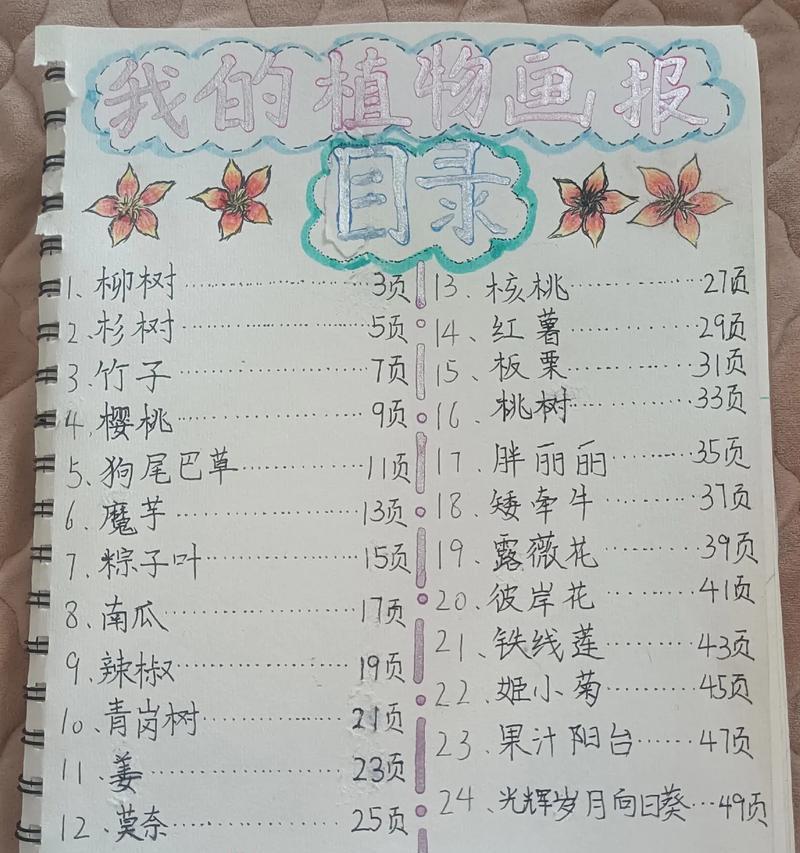 我的植物画报
目录
1、柳树………………3页
2、杉树………………5页
3、竹子………………7页
4、樱桃………………9页
5、狗尾巴草…………11页
6、魔芋………………13页
7、粽子叶……………15页
8、南瓜………………17页
9、辣椒………………19页
10、青岗树……………21页
11、姜………………23页
12、莫奈………………25页
13、核桃………………27页
14、红薯………………29页
15、板栗………………31页
16、桃树………………33页
17、胖丽丽……………35页
18、矮牵牛……………37页
19、露薇花……………39页
20、彼岸花……………41页
21、铁线莲……………43页
22、姬小菊……………45页
23、果汁阳台……47页
24、光辉岁月向日葵…49页